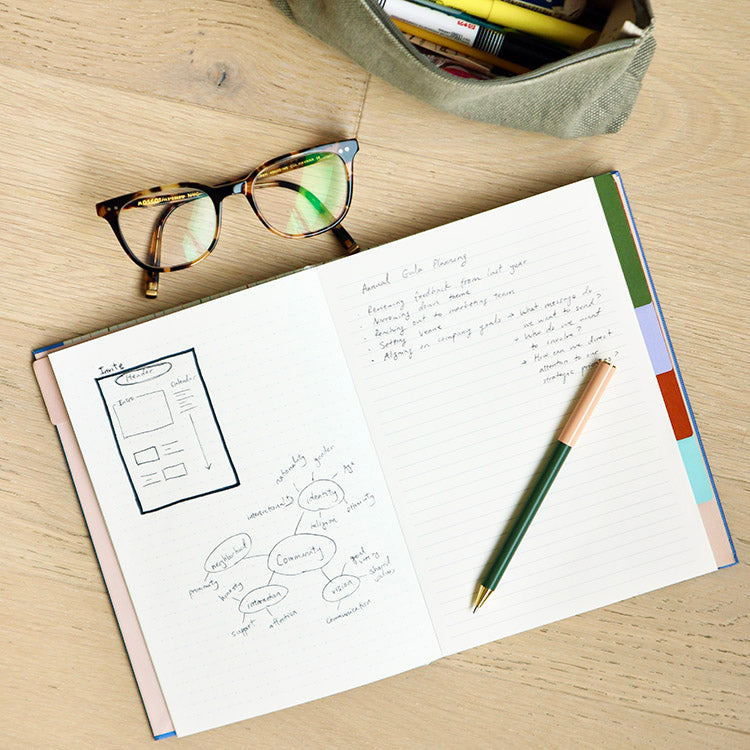 Invite
Header
Intro
Calendar
nationality
gender
Age
intersectionality
identity
ethnicity
religion
neighborhood
Community
proximity
honesty
interaction
support
affection
vision
goal
shared
values
communication
Annual Gala Planning
· Reviewing feedback from last year
· Narrowing down theme
· Reaching out to marketing team
· Setting venue
· Aligning on company goals → What message do
we want to send?
→ Who do we want
to involve?
→ How can we direct
attention to our
strategic